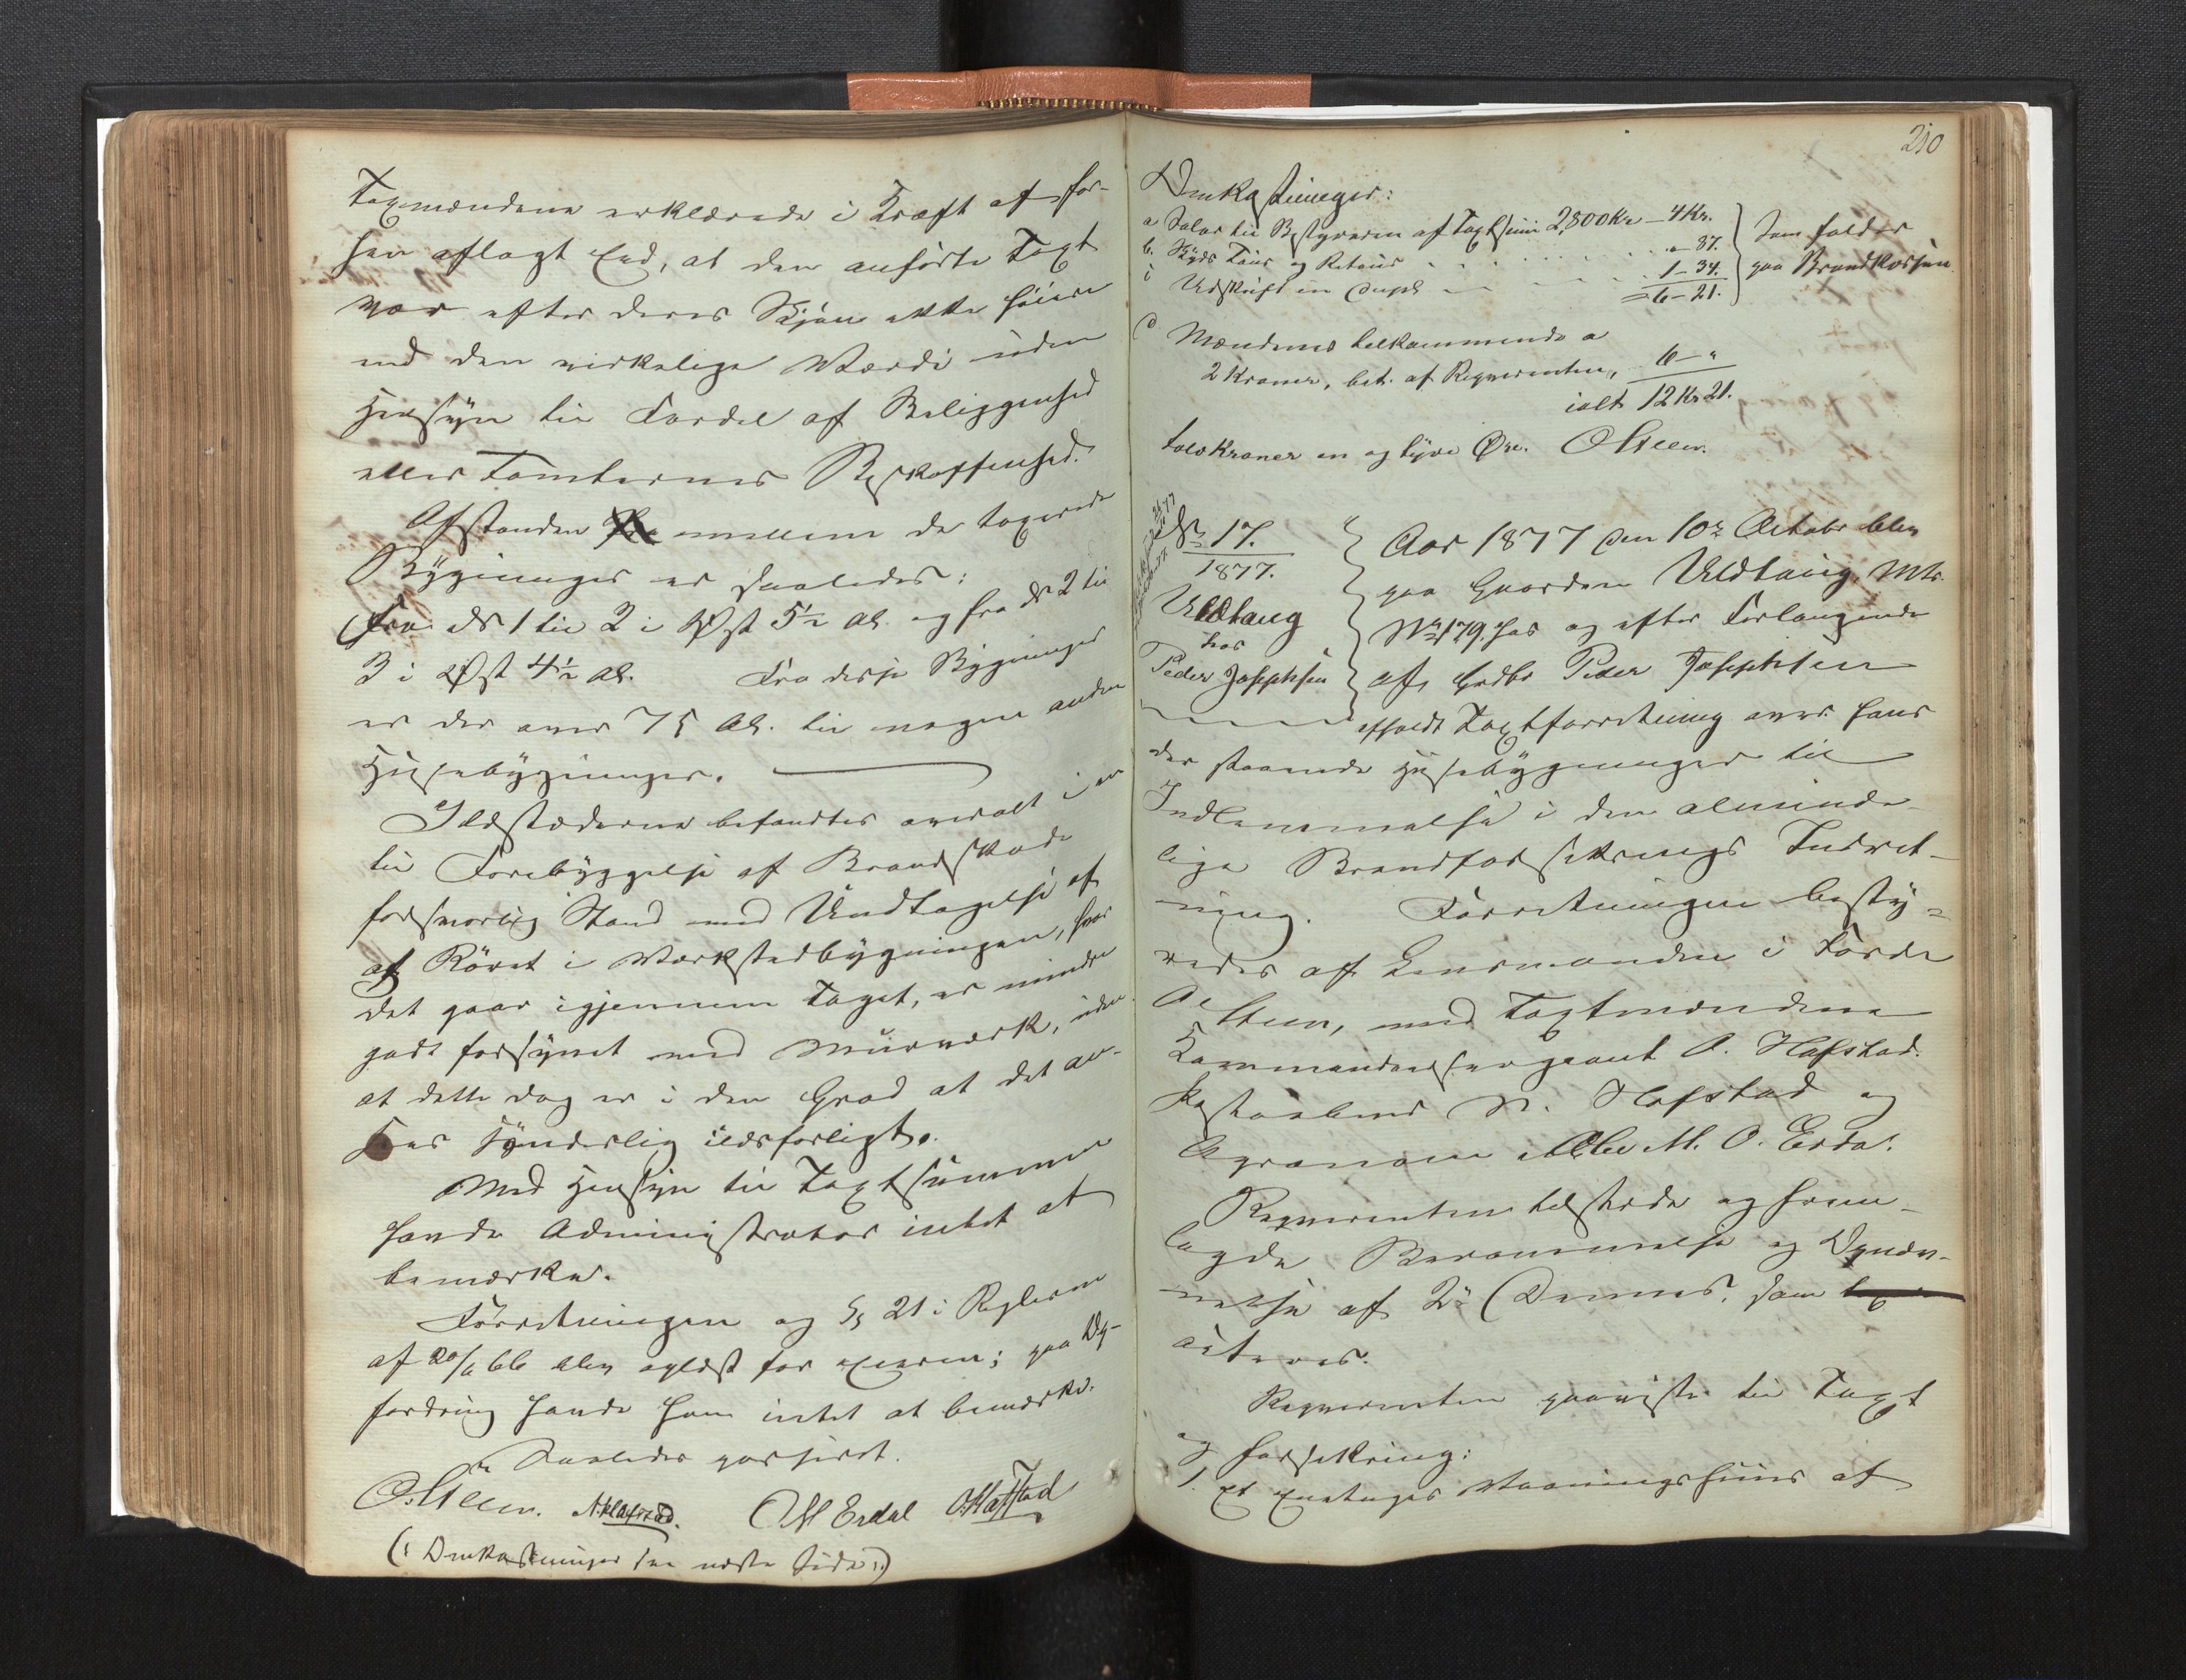 Taxmændene erklærede i Kraft af for-
hen aflagt Eed, at den anførte Taxt
var efter deres Skjøn ikke høiere
end den virkelige Værdi uden
Hensyn til Fordel af Beliggenhed
eller Tomternes Beskaffenhed.
Afstanden mellem de taxerede
Bygninger er saaledes:
Fra № 1 til 2 i Øst 5½ Al. og fra № 2 til
3 i Øst 4½ Al. Fra disse Bygninger
er der over 75 Al. til nogen anden
Husebygninger.
Ildstederne befandtes overalt i en
til Forebyggelse af Brandskade
forsvarlig Stand med Undtagelse af
at Røret i Værkstedbygningen, hvor
det gaar igjennem Taget, er mindre
godt forsynet med Muurværk, uden
at dette dog er i den Grad at det an-
sees synderlig ildsfarligt.
Med Hensyn til Taxtsummen
havde Administrator intet at
bemærke.
Forretningen og § 21 i Reglerne
af 20/6 66 blev oplæst for Eieren; paa Op-
fordring havde han intet at bemærke.
Saaledes passeret.
O. Steen. N. Hafstad. O M Erdal O. Hafstad
(: Omkostninger see næste Side :)
210
Omkostninger:
a Salar til Bestyreren af Taxtsum 2,800 Kr – 4 Kr.
b. Skyds Tour og Retour – 87.
c Udskrift in dupl 1 – 34.
= 6 – 21.
Som falder
paa Brandkassen
d Mændenes tilkommende a
2 Kroner, bet. af Reqvirenten, 6 – "
ialt 12 Kr 21.
tolv Kroner en og tyve Øre. O Steen.
№ 17.
1877.
Uldtang
hos
Peder Josephsen
Aar 1877 den 10de October blev
paa Gaarden Uldtang, Mtr.
No 179, hos og efter Forlangende
af Gbr Peder Josephsen
afholdt Taxtforretning over hans
der staaende Husebygninger til
Indlemmelse i den alminde-
lige Brandforsikrings Indret-
ning. Forretningen besty-
redes af Lensmanden i Førde
O Steen, med Taxtmændene
Kommandeersergeant O. Hafstad.
Postaabner N. Hafstad og
Agronom O. Erdal.
Reqvirenten tilstede og frem-
lagde Berammelse og Opnæv-
nelse af 2de Dennes, som
acteres.
Reqvirenten paaviste til Taxt
og Forsikring:
1. Et Enetages Vaaningshuus af